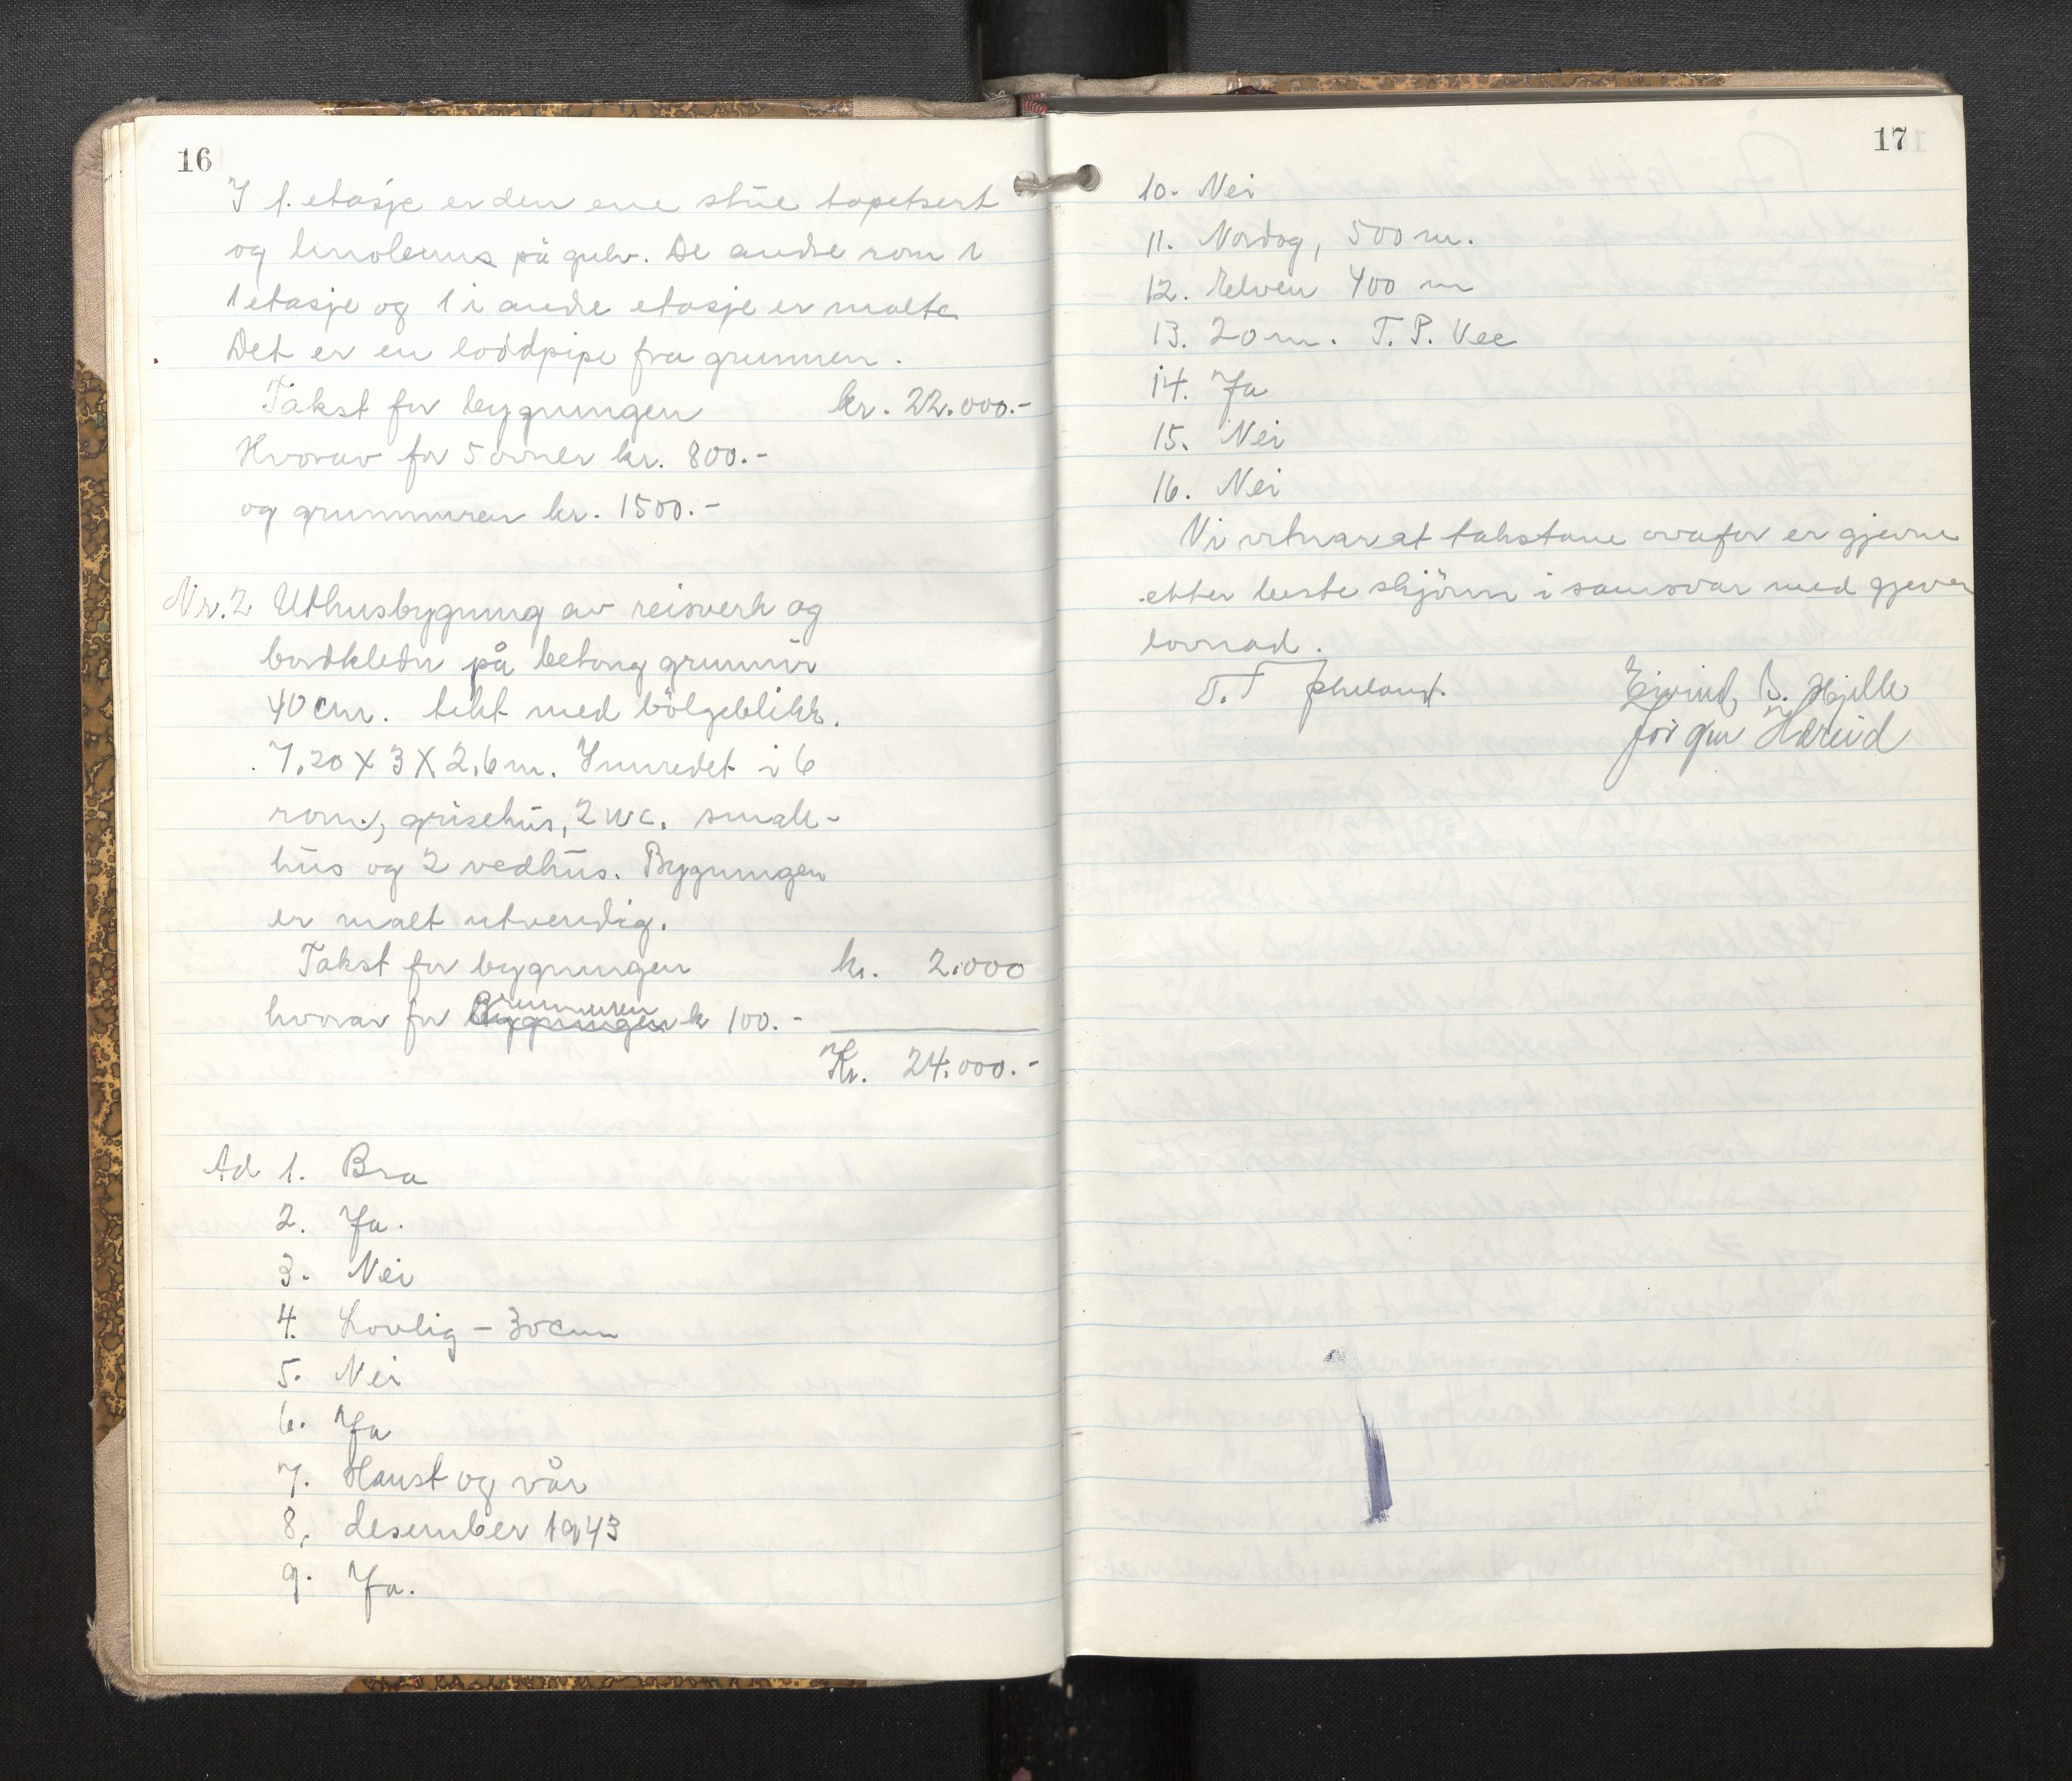 16
I 1. etasje er den ene stue tapetsert
og linoleums på gulv. De andre rom i
1 etasje og 1 i andre etasje er malte
Det er en loddpipe fra grunnen.
Takst for bygningen kr. 22.000.-
Hvorav for 5 ovner kr. 800.-
og grunnmuren kr. 1500.-
Nr. 2 Uthusbygning av reisverk og
bordkledn på betong grunnmur
40 cm. tekt med bölgeblikk.
7,20 X 3 X 2,6 m. Innredet i 6
rom, grisehus, 2 wc. smale-
hus og 2 vedhus. Bygningen
er malt utvendig.
Takst for bygningen kr. 2.000
hvorav for grunnmuren k 100.-
Kr. 24.000.-
Ad 1. Bra
2. Ja.
3. Nei
4. Lovlig - 30 cm
5. Nei
6. Ja
7. Haust og vår
8. desember 1943
9. Ja.
17
10. Nei
11. Nordog, 500 m.
12. Elven 400 m
13. 20 m. T. P. Vee
14. Ja
15. Nei
16. Nei
Vi vitnar at takstane ovafor er gjevne
etter beste skjönn i samsvar med gjeven
lovnad.
Eivind B. Hjelle
Jörgen Hareid